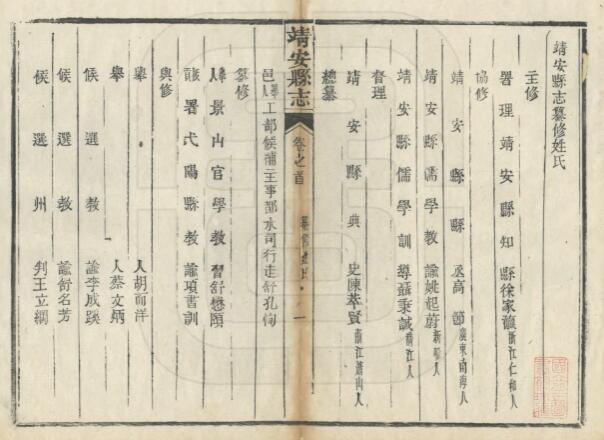 靖安縣志纂修姓氏
主修
署理靖安縣知縣徐家瀛浙江仁和人
協修
靖安縣縣丞高節廣東南海人
靖安縣儒學教諭姚起蔚新喻人
靖安縣儒學訓導益秉誠浙江人
督理
靖安縣典史陳萃賢浙江蕭山人
總纂
邑舉人工部候補主事都水司行走舒孔恂
靖安縣志
卷之首
纂修姓氏
一
纂修
舉人景山官學教習舒懋頤
署弋陽縣教諭項書訓
與修
舉人胡而洋
舉人蔡文炳
候選教諭李成蹊
候選教諭舒名芳
候選州判王立綱